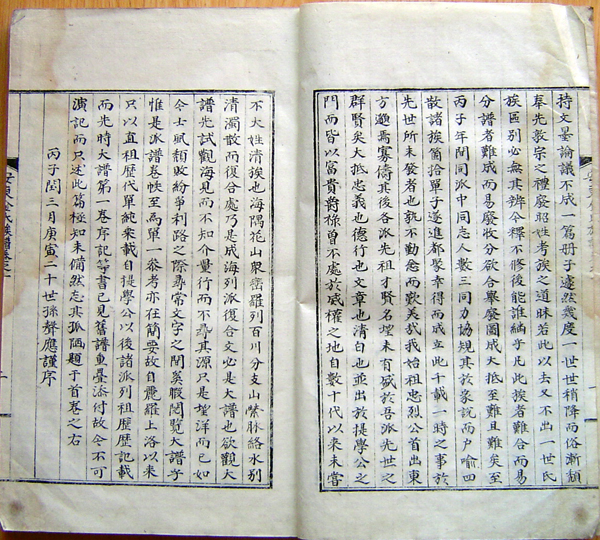 持文晏論議不成一篇册子遽然幾度一世世稍降而俗漸頹
秦先敎宗之禮廢昭姓考族之道昧若此以去又不出一世氏
族區別必無其辨今釋不修後能誰緬乎凡此族者難合而易
分譜者難成而易廢收分欲合擧廢圖成大抵至難且難矣至
丙子年間同派中同志人數三同力協規其於衆說而戶喩四
散諸族箇拾單子遂進都聚幸得而成立此千載一時之事於
先世所未發者也孰不勤念而歎美哉我始祖忠烈公首出東
方遯焉寡儔其後各派先祖才賢名埋未有盛於吾派先世之
群賢矣大抵忠義也德行也文章也清白也並出於提學公之
門而皆以富貴爵祿曾不處於威權之地自數十代以來未嘗
不大姓清族也海隅花山衆巒羅列百川分支山縈脉絡水別
清濁散而復合處乃是成海列派復合文必是大譜也欲觀大
譜先試觀海見而不知介量行而不尋其源只是望洋而已如
今士風頹敗紛爭利路之際尋常文字之間奚暇閱覽大譜乎
惟是派譜卷帙至馬單一叅考亦在簡要故自麗羅上洛以來
只以直祖歷代單純來載自提學公以後諸派列祖歷歷記載
而先時大譜第一卷序記等書已見舊譜重疊添付故今不可
演記而只述此篇極知未備然忘其孤陋題于首卷之右
丙子閏三月庚寅二十世孫聲應謹序